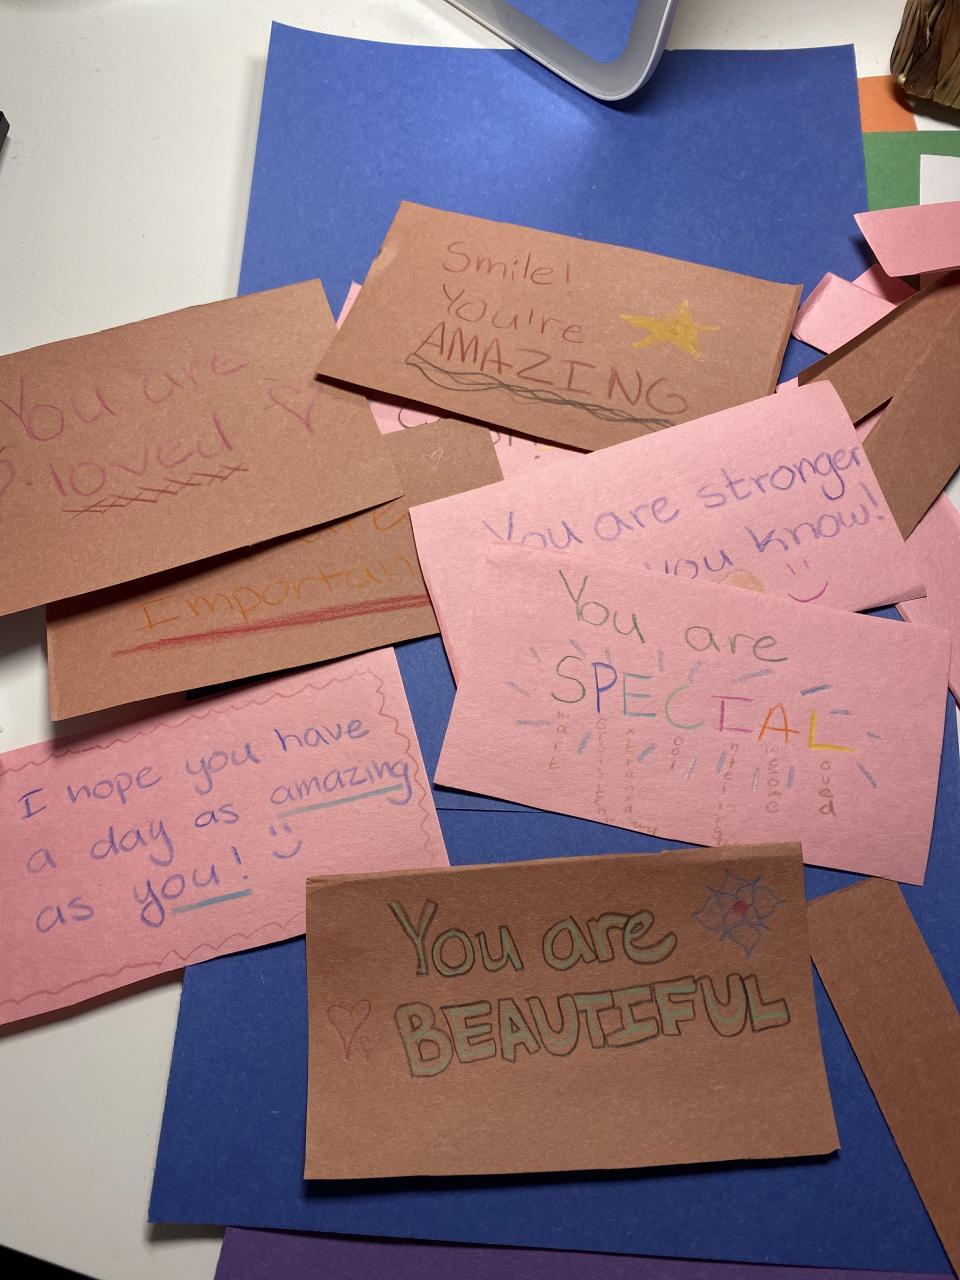 Smile!
You're
AMAZING
You are
loved
are
Importan
You are stronger
you know!
You are
SPECIAL
I hope you have
a day as amazing
as you!
You are
BEAUTIFUL